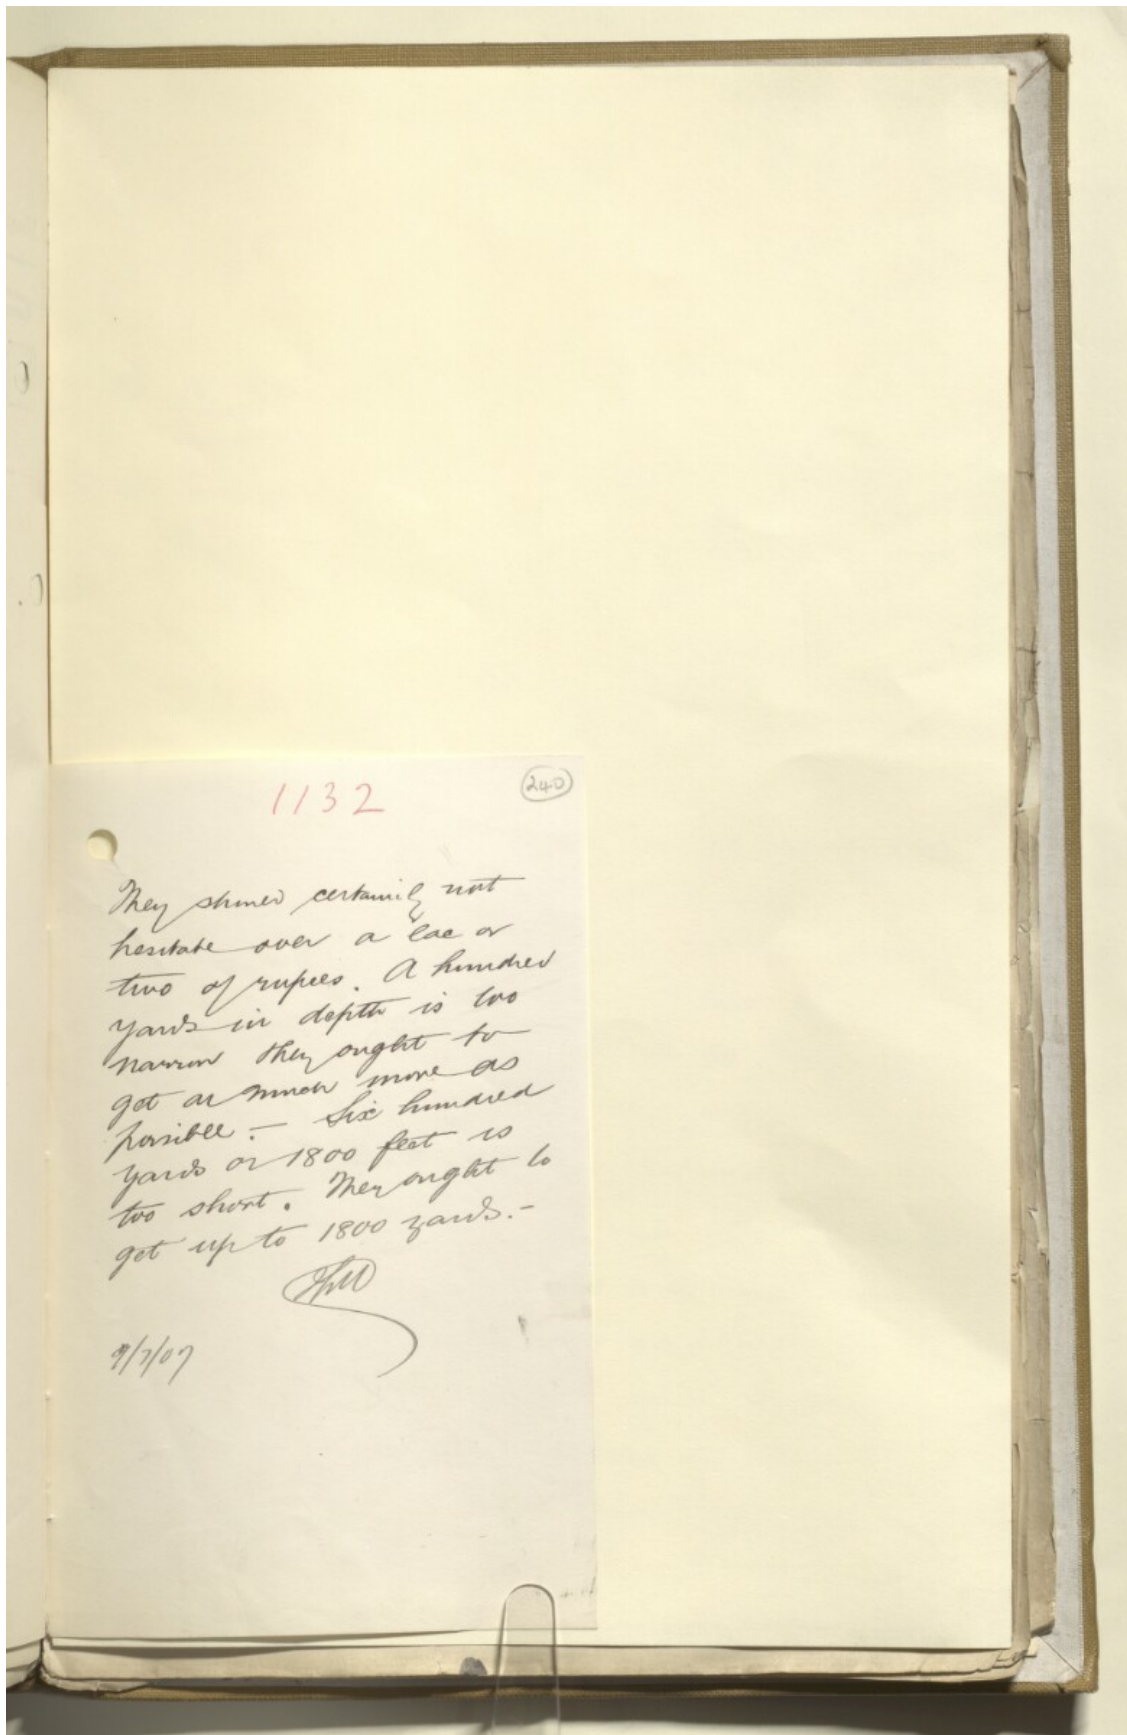 1132
240
They should certainly not
hesitate over a lac or
two of rupees. A hundred
yards in depth is too
narrow they ought to
get as much more as
possible. — Six hundred
yards or 1800 feet is
too short. They ought to
get up to 1800 yards. —
9/7/07